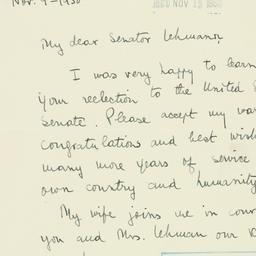 Nov. 9 - 1950
REC'D NOV 13 1950
My dear Senator Lehman,
I was very happy to learn
your reelection to the United S
Senate. Please accept my wa
congratulations and best wish
many more years of service
own country and humanity
My wife joins me in conv
you and Mrs. Lehman our